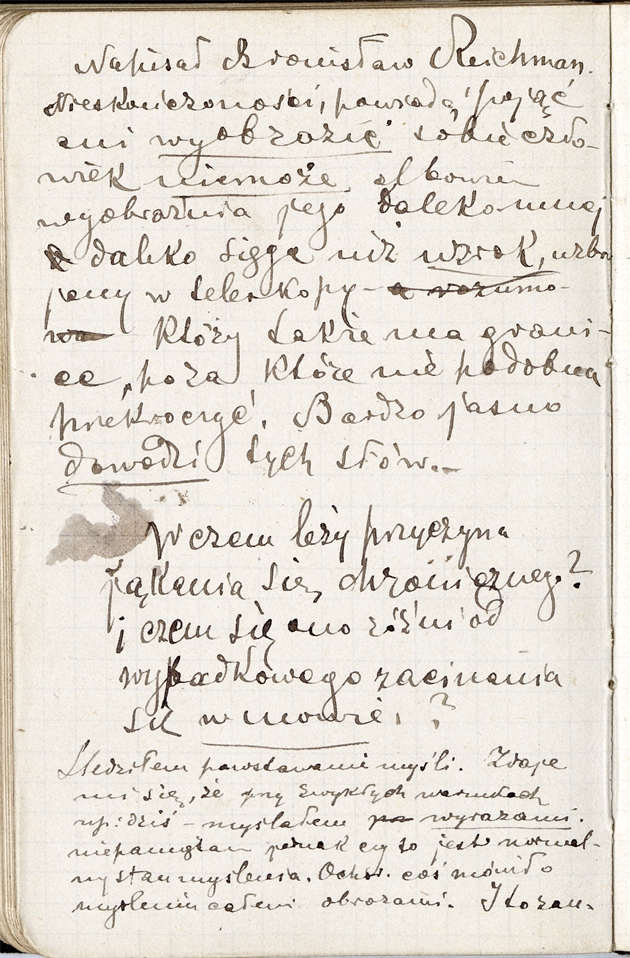 Napisał Bronisław Reichman.
Nieskończoności, powiada, pojąć
ani wyobrazić sobie czło-
wiek niemoże, albowiem
wyobraźnia jego daleko mniej
daleko sięga niż wzrok, uzbro
jony w teleskopy - a rozumo-
wa który takie ma grani-
ce, poza które nie podobna
przekroczyć. Bardzo jasno
dowodzi tych słów. –
W czem leży przyczyna
jąkania się, chronicznego?
i czem się ono różni od
wypadkowego zacinania
się w mowie. ?
Śledziłem powstawanie myśli. Zdaje
mi się, że przy zwykłych warunkach
np: dziś – myślałem wyrazami.
niepamiętam jednak czy to jest normal-
ny stan myślenia. Ochor. coś mówił o
myśleniu całemi obrazami.